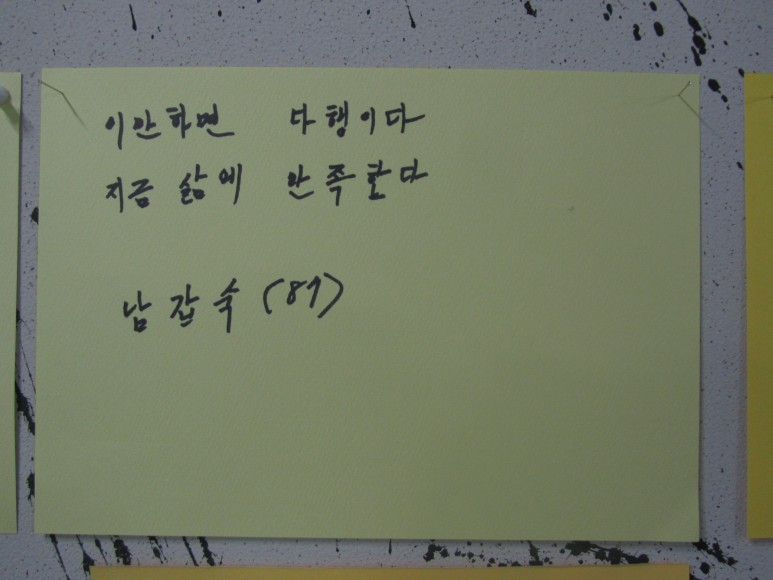 이만하면 다행이다
지금 삶에 만족한다
남갑숙 (81)